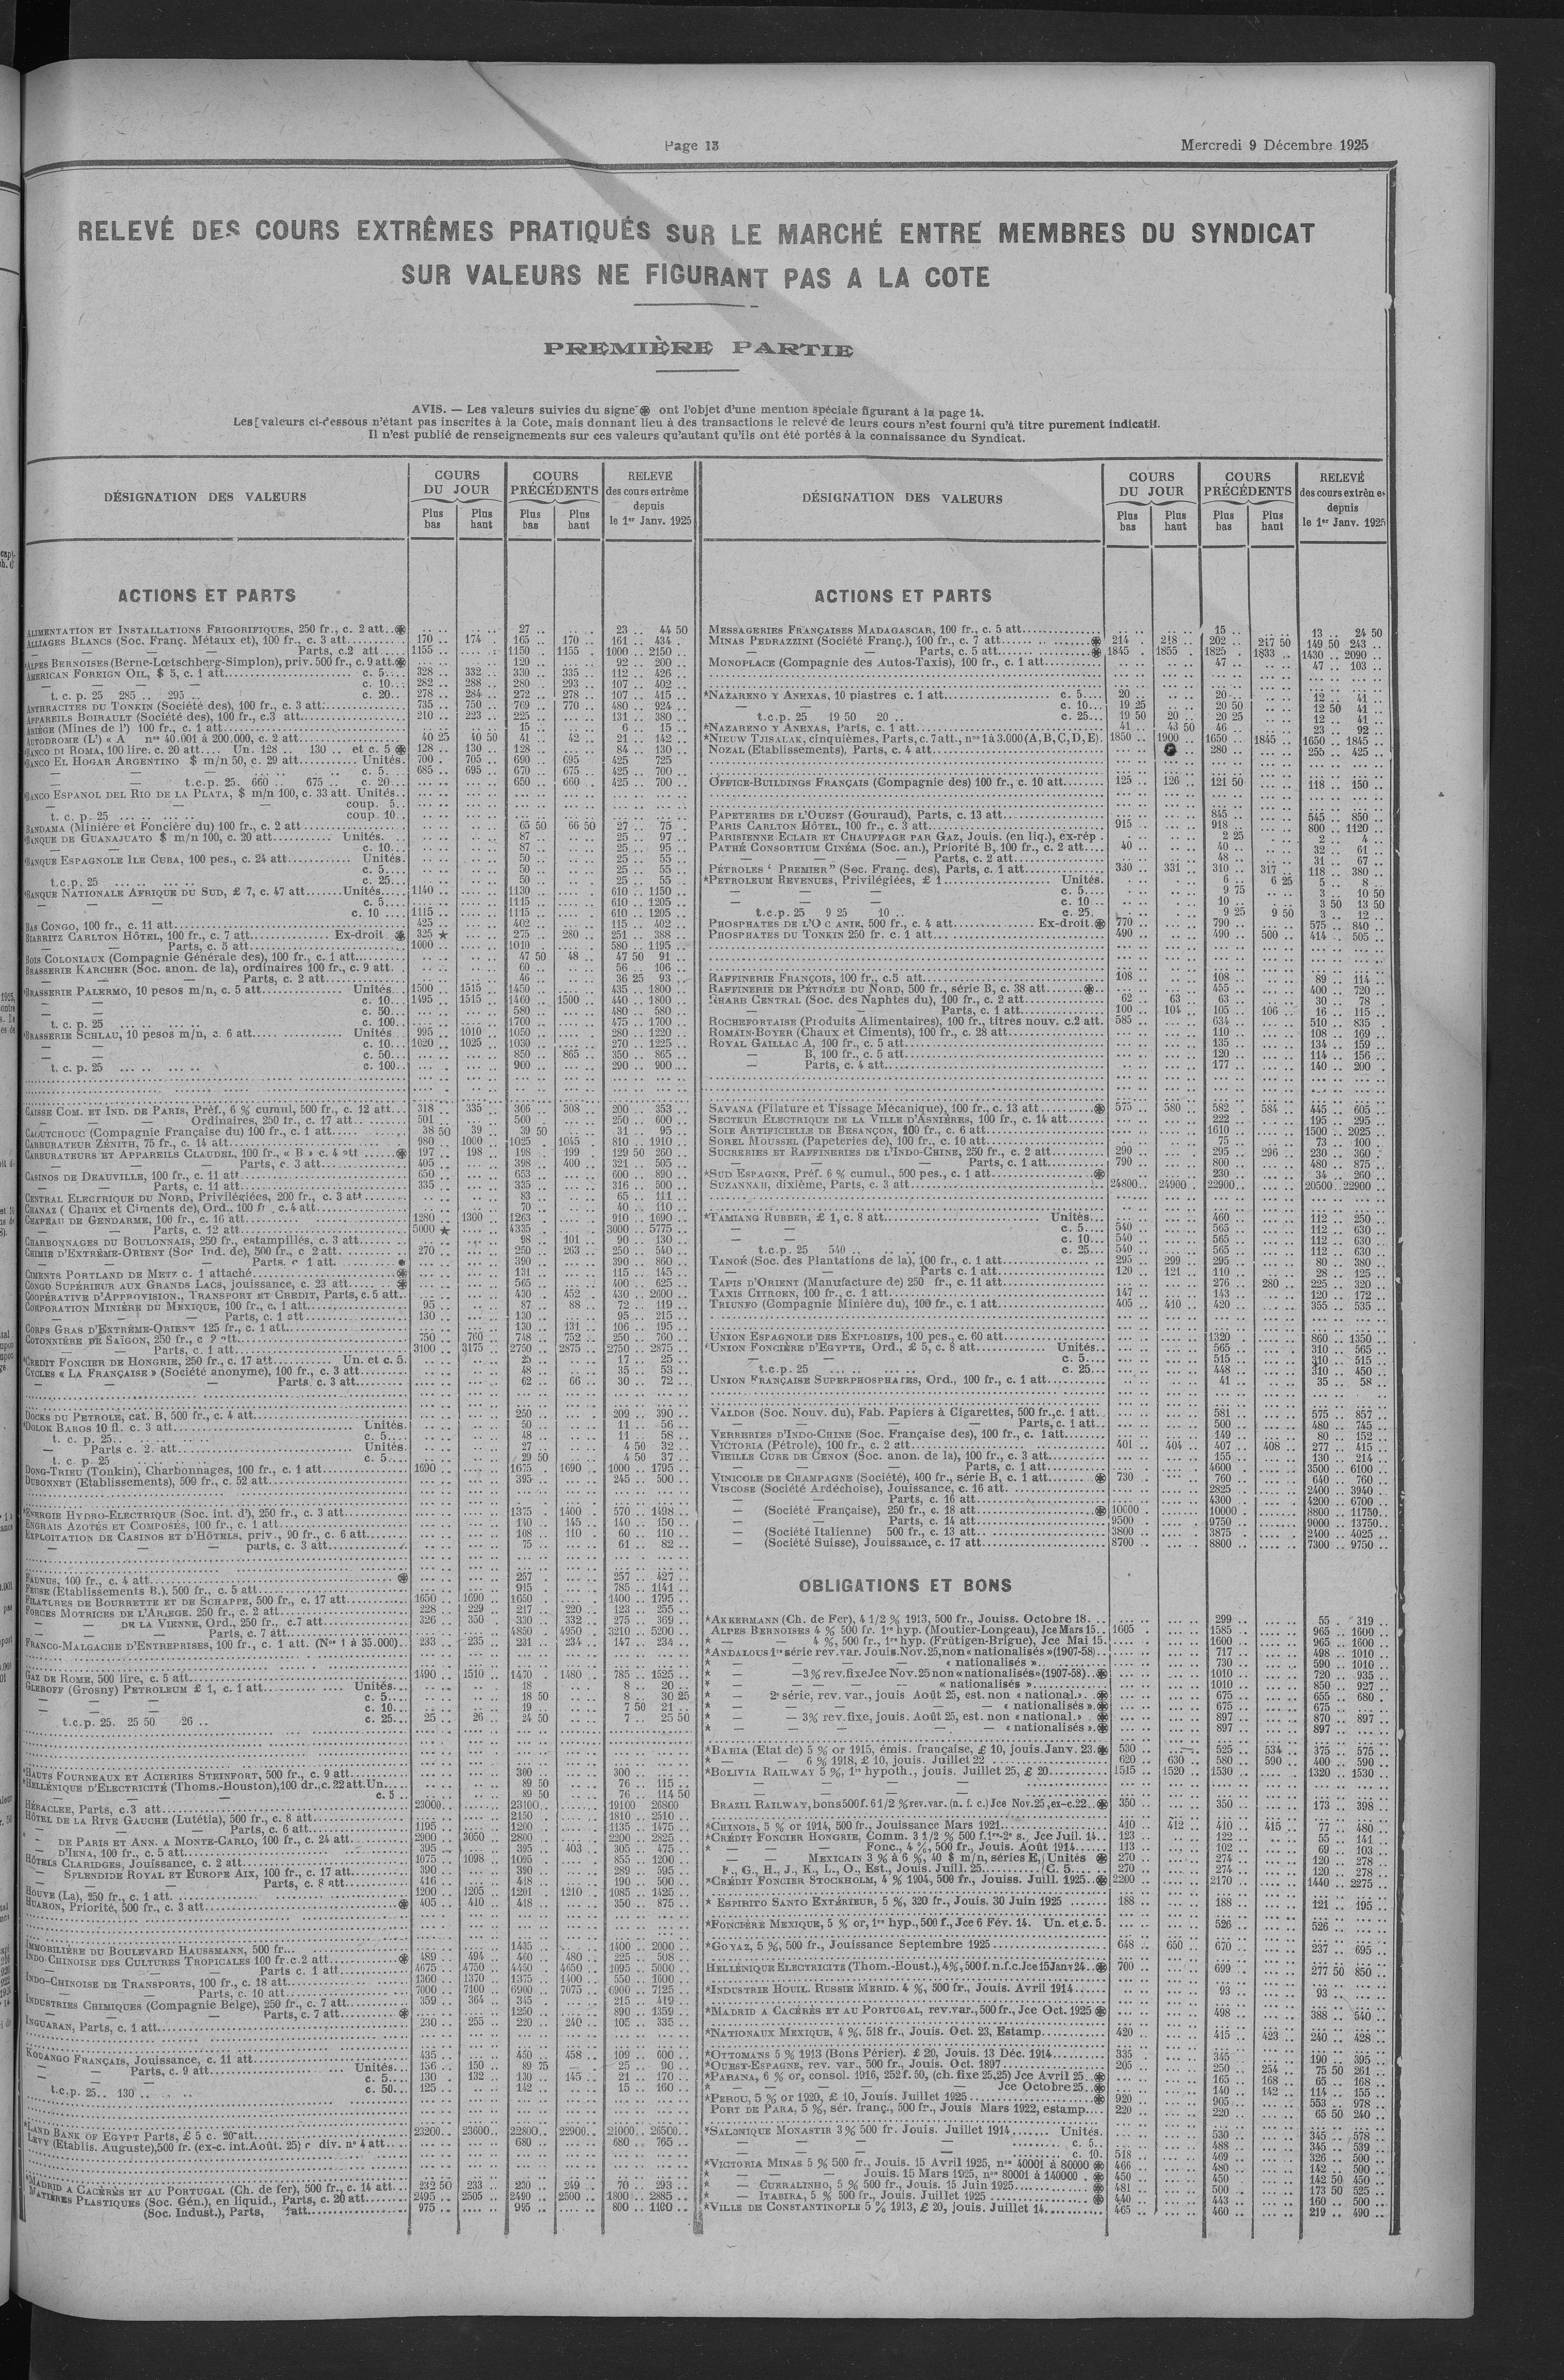 Page 13
Mercredi 9 Décembre 1925
RELEVÉ DES COURS EXTRÊMES PRATIQUÉS SUR LE MARCHÉ ENTRE MEMBRES DU SYNDICAT
SUR VALEURS NE FIGURANT PAS A LA COTE
PREMIÈRE PARTIE
AVIS. — Les valeurs suivies du signe ont l'objet d'une mention spéciale figurant à la page 14.
Les valeurs ci-dessous n'étant pas inscrites à la Cote, mais donnant lieu à des transactions le relevé de leurs cours n'est fourni qu'à titre purement indicatif.
Il n'est publié de renseignements sur ces valeurs qu'autant qu'ils ont été portés à la connaissance du Syndicat.
DÉSIGNATION DES VALEURS
COURS DU JOUR
Plus bas
Plus haut
COURS PRÉCÉDENTS
Plus bas
Plus haut
RELEVÉ des cours extrême depuis le 1er Janv. 1925
ACTIONS ET PARTS
ALIMENTATION ET INSTALLATIONS FRIGORIFIQUES, 250 fr., c. 2 att. 27 .. 23 .. 44 50
ALLIAGES BLANCS (Soc. Franç. Métaux et), 100 fr., c. 3 att. 170 .. 174 .. 165 .. 170 .. 161 .. 434 ..
— — — Parts, c.2 att 1155 .. 1150 .. 1155 .. 1000 .. 2150 ..
*ALPES BERNOISES (Berne-Lœtschberg-Simplon), priv. 500 fr., c. 9 att. 120 .. 92 .. 200 ..
AMERICAN FOREIGN OIL, $ 5, c. 1 att. c. 5 328 .. 332 .. 330 .. 335 .. 112 .. 426 ..
— c. 10 282 .. 288 .. 280 .. 293 .. 107 .. 402 ..
t. c. p. 25 285 .. 295 .. c. 20 278 .. 284 .. 272 .. 278 .. 107 .. 415 ..
ANTHRACITES DU TONKIN (Société des), 100 fr., c. 3 att. 735 .. 750 .. 769 .. 770 .. 480 .. 924 ..
APPAREILS BOIRAULT (Société des), 100 fr., c.3 att. 210 .. 223 .. 225 .. 131 .. 380 ..
ARIÈGE (Mines de l') 100 fr., c. 1 att. 15 .. 6 .. 15 ..
AUTODROME (L') « A nos 40.001 à 200.000, c. 2 att. 40 25 40 50 41 .. 42 .. 21 .. 142 ..
*BANCO DI ROMA, 100 lire. c. 20 att. Un. 128 .. 130 .. et c. 5 128 .. 130 .. 128 .. 84 .. 130 ..
*BANCO EL HOGAR ARGENTINO $ m/n 50, c. 29 att. Unités. 700 .. 705 .. 690 .. 695 .. 425 725
— c. 5 685 .. 695 .. 670 .. 675 .. 425 .. 700 ..
— t.c.p. 25. 660 .. 675 .. c. 20 650 .. 660 .. 425 .. 700 ..
*BANCO ESPANOL DEL RIO DE LA PLATA, $ m/n 100, c. 33 att. Unités.
— coup. 5
t. c. p. 25 coup. 10
BANDAMA (Minière et Foncière du) 100 fr., c. 2 att. 65 50 66 50 27 .. 75 ..
*BANQUE DE GUANAJUATO $ m/n 100, c. 20 att. Unités. 87 .. 25 .. 97 ..
— c. 10 87 .. 25 .. 95 ..
*BANQUE ESPAGNOLE ILE CUBA, 100 pes., c. 24 att. Unités 50 .. 25 .. 55 ..
c. 5 50 .. 25 .. 55 ..
t.c.p. 25 c. 25 50 .. 25 .. 55 ..
*BANQUE NATIONALE AFRIQUE DU SUD, £ 7, c. 47 att. Unités 1140 .. 1130 .. 610 .. 1150 ..
— c. 5 1115 .. 610 .. 1205 ..
— c. 10 1115 .. 1115 .. 610 .. 1205 ..
BAS CONGO, 100 fr., c. 11 att. 425 .. 402 .. 115 .. 402 ..
BIARRITZ CARLTON HÔTEL, 100 fr., c. 7 att. Ex-droit 325 ★ 275 .. 280 .. 251 .. 388 ..
— Parts, c. 5 att. 1000 .. 1010 .. 580 .. 1195 ..
BOIS COLONIAUX (Compagnie Générale des), 100 fr., c. 1 att. 47 50 48 .. 47 50 91 ..
BRASSERIE KARCHER (Soc. anon. de la), ordinaires 100 fr., c. 9 att. 60 .. 56 .. 106 ..
— Parts, c. 2 att. 46 .. 36 25 93 ..
*BRASSERIE PALERMO, 10 pesos m/n, c. 5 att. Unités 1500 .. 1515 .. 1450 .. 435 .. 1800 ..
c. 10 1495 .. 1515 .. 1460 .. 1500 .. 440 .. 1800 ..
c. 50 580 .. 480 .. 580 ..
t. c. p. 25 c. 100 1700 .. 475 .. 1700 ..
*BRASSERIE SCHLAU, 10 pesos m/n, c. 6 att. Unités 995 .. 1010 .. 1050 .. 280 .. 1220 ..
c. 10 1020 .. 1025 .. 1030 .. 270 .. 1225 ..
c. 50 850 .. 865 .. 350 .. 865 ..
t. c. p. 25 c. 100 900 .. 290 .. 900 ..
CAISSE COM. ET IND. DE PARIS, Préf., 6 % cumul, 500 fr., c. 12 att. 318 .. 335 .. 306 .. 308 .. 200 353 ..
— Ordinaires, 250 fr., c. 17 att. 501 .. 500 .. 250 600 ..
CAOUTCHOUC (Compagnie Française du) 100 fr., c. 1 att. 38 50 39 .. 39 50 31 .. 95 ..
CARBURATEUR ZÉNITH, 75 fr., c. 14 att. 980 .. 1000 .. 1025 .. 1045 .. 810 .. 1910 ..
CARBURATEURS ET APPAREILS CLAUDEL, 100 fr., « B » c. 4 att. 197 .. 198 .. 198 .. 199 .. 129 50 260 ..
— Parts, c. 3 att. 405 .. 398 .. 400 .. 321 .. 505 ..
CASINOS DE DEAUVILLE, 100 fr., c. 11 att 650 .. 653 .. 600 .. 890 ..
— Parts, c. 11 att. 335 .. 335 .. 316 .. 500 ..
CENTRAL ELECTRIQUE DU NORD, Privilégiées, 200 fr., c. 3 att 83 .. 65 .. 111 ..
CHANAZ (Chaux et Ciments de), Ord., 100 fr., c. 4 att. 70 .. 40 .. 110 ..
CHAPEAU DE GENDARME, 100 fr., c. 16 att. 1280 .. 1300 .. 1263 .. 910 .. 1690 ..
— Parts, c. 12 att. 5000 ★ 4335 .. 3000 .. 5775 ..
CHARBONNAGES DU BOULONNAIS, 250 fr., estampillés, c. 3 att. 98 .. 101 .. 90 .. 130 ..
CHIMIE D'EXTRÊME-ORIENT (Soc Ind. de), 500 fr., c 2 att. 270 .. 250 .. 263 .. 250 .. 540 ..
— Parts. c 1 att. 390 .. 390 .. 860 ..
CIMENTS PORTLAND DE METZ c. 1 attaché 131 .. 115 .. 145 ..
CONGO SUPÉRIEUR AUX GRANDS LACS, jouissance, c. 23 att. 565 .. 400 .. 625 ..
COOPÉRATIVE D'APPROVISION., TRANSPORT ET CRÉDIT, Parts, c. 5 att. 430 .. 452 .. 430 .. 2600 ..
CORPORATION MINIÈRE DU MEXIQUE, 100 fr., c. 1 att. 95 .. 87 .. 88 .. 72 .. 119 ..
— Parts, c. 1 att. 130 .. 130 .. 95 .. 215 ..
CORPS GRAS D'EXTRÊME-ORIENT 125 fr., c. 1 att. 130 .. 131 .. 106 .. 195 ..
COTONNIÈRE DE SAÏGON, 250 fr., c 2 att. 750 .. 760 .. 748 .. 752 .. 250 .. 760 ..
— Parts, c. 1 att. 3100 .. 3175 .. 2750 .. 2875 .. 2750 .. 2875 ..
*CRÉDIT FONCIER DE HONGRIE, 250 fr., c. 17 att. Un. et c. 5. 25 .. 17 .. 25 ..
CYCLES « LA FRANÇAISE » (Société anonyme), 100 fr., c. 3 att. 48 .. 35 .. 53 ..
— Parts. c. 3 att. 62 .. 66 .. 30 .. 72 ..
DOCKS DU PÉTROLE, cat. B, 500 fr., c. 4 att. 250 .. 209 .. 390 ..
*DOLOK BAROS 10 fl. c. 3 att. Unités. 50 .. 11 .. 56 ..
t. c. p. 25 c. 5 48 .. 11 .. 58 ..
— Parts c. 2 att. Unités. 27 .. 4 50 32 ..
t. c. p. 25 c. 5 29 50 4 50 37 ..
DONG-TRIEU (Tonkin), Charbonnages, 100 fr., c. 1 att. 1690 .. 1675 .. 1690 .. 1000 .. 1795 ..
DUBONNET (Etablissements), 500 fr., c. 52 att. 395 .. 245 .. 500 ..
*ENERGIE HYDRO-ELECTRIQUE (Soc. int. d'), 250 fr., c. 3 att. 1375 .. 1400 .. 570 .. 1498 ..
ENGRAIS AZOTÉS ET COMPOSÉS, 100 fr., c. 1 att. 140 .. 145 .. 140 .. 150 ..
EXPLOITATION DE CASINOS ET D'HÔTELS, priv., 90 fr., c. 6 att. 108 .. 110 .. 60 .. 110 ..
— parts, c. 3 att. 75 .. 61 .. 82 ..
FAUNUS, 100 fr., c. 4 att. 257 .. 257 .. 427 ..
FEUSE (Etablissements B.), 500 fr., c. 5 att. 915 .. 785 .. 1141 ..
FILATURES DE BOURRETTE ET DE SCHAPPE, 500 fr., c. 17 att. 1650 .. 1690 .. 1650 .. 1400 .. 1795 ..
FORCES MOTRICES DE L'ARIÈGE. 250 fr., c. 2 att. 228 .. 229 .. 217 .. 220 .. 123 .. 255 ..
— DE LA VIENNE, Ord., 250 fr., c.7 att. 326 .. 350 .. 330 .. 332 .. 275 .. 369 ..
— Parts, c. 7 att. 4850 .. 4950 .. 3210 .. 5200 ..
FRANCO-MALGACHE D'ENTREPRISES, 100 fr., c. 1 att. (Nos 1 à 35.000) 233 .. 235 .. 231 .. 234 .. 147 .. 234 ..
GAZ DE ROME, 500 lire, c. 5 att. 1490 .. 1510 .. 1470 .. 1480 .. 785 .. 1525 ..
GLEBOFF (Grosny) PETROLEUM £ 1, c. 1 att. Unités 18 .. 8 .. 20 ..
c. 5 18 50 8 .. 30 25
c. 10 19 .. 7 50 21 ..
t.c.p. 25. 25 50 26 .. c. 25 25 .. 26 .. 24 50 7 .. 25 50
*HAUTS FOURNEAUX ET ACIERIES STEINFORT, 500 fr., c. 9 att. 360 .. 300 ..
*HELLÉNIQUE D'ELECTRICITÉ (Thoms.-Houston), 100 dr., c. 22 att. Un. 89 50 76 .. 115 ..
c. 5 89 50 76 .. 114 50
HÉRACLÉE, Parts, c. 3 att. 23000 .. 23100 .. 19100 26800
HÔTEL DE LA RIVE GAUCHE (Lutétia), 500 fr., c. 8 att. 2150 1810 .. 2510 ..
— Parts, c. 6 att. 1195 .. 1200 .. 1135 .. 1475 ..
— DE PARIS ET ANN. A MONTE-CARLO, 100 fr., c. 24 att. 2900 3050 .. 2800 .. 2200 .. 2825 ..
— D'IENA, 100 fr., c. 5 att. 395 .. 395 .. 403 .. 305 .. 475 ..
HÔTELS CLARIDGES, Jouissance, c. 2 att. 1075 .. 1098 .. 1095 .. 855 .. 1200 ..
— SPLENDIDE ROYAL ET EUROPE AIX, 100 fr., c. 17 att. 390 .. 390 .. 289 .. 595 ..
— Parts, c. 8 att. 416 .. 418 .. 190 .. 500 ..
HOUVE (La), 250 fr., c. 1 att. 1200 .. 1205 .. 1201 .. 1210 .. 1085 .. 1425 ..
HUARON, Priorité, 500 fr., c. 3 att. 405 .. 410 .. 418 .. 350 .. 875 ..
IMMOBILIÈRE DU BOULEVARD HAUSSMANN, 500 fr. 1435 .. 1400 .. 2000 ..
INDO-CHINOISE DES CULTURES TROPICALES 100 fr. c.2 att. 489 .. 494 .. 460 .. 480 .. 225 .. 508 ..
— Parts c. 1 att. 4675 .. 4750 .. 4450 .. 4650 .. 1095 .. 5000 ..
INDO-CHINOISE DE TRANSPORTS, 100 fr., c. 18 att. 1360 .. 1370 .. 1375 .. 1400 .. 550 .. 1600 ..
— Parts, c. 10 att. 7000 .. 7100 .. 6900 .. 7075 .. 6900 .. 7125 ..
INDUSTRIES CHIMIQUES (Compagnie Belge), 250 fr., c. 7 att. 359 .. 364 .. 345 .. 215 .. 419 ..
— Parts, c. 7 att. 1250 .. 890 .. 1359 ..
INGUARAN, Parts, c. 1 att. 230 .. 255 .. 220 .. 240 .. 105 .. 335 ..
KOUANGO FRANÇAIS, Jouissance, c. 11 att. 435 .. 450 .. 458 .. 109 .. 600 ..
— Parts, c. 9 att. Unités 136 .. 150 .. 89 75 25 .. 90 ..
c. 5 130 .. 132 .. 130 .. 145 .. 21 .. 170 ..
t.c.p. 25.. 130 .. c. 50 125 .. 142 .. 15 .. 160 ..
*LAND BANK OF EGYPT Parts, £ 5 c. 20 att. 23200 .. 23600 .. 22800 .. 22900 .. 21000 .. 26500 ..
LEVY (Etablis. Auguste), 500 fr. (ex-c. int. Août. 25) c div. n° 4 att. 680 .. 680 .. 765 ..
*MADRID A CACÉRÈS ET AU PORTUGAL (Ch. de fer), 500 fr., c. 14 att. 232 50 233 .. 230 .. 249 .. 70 .. 293 ..
MATIÈRES PLASTIQUES (Soc. Gén.), en liquid., Parts, c. 20 att. 2495 .. 2505 .. 2490 .. 2500 .. 1800 .. 2885 ..
(Soc. Indust.), Parts, 1 att. 975 .. 995 .. 800 .. 1100 ..
DÉSIGNATION DES VALEURS
COURS DU JOUR
Plus bas
Plus haut
COURS PRÉCÉDENTS
Plus bas
Plus haut
RELEVÉ des cours extrêmes depuis le 1er Janv. 1925
ACTIONS ET PARTS
MESSAGERIES FRANÇAISES MADAGASCAR, 100 fr., c. 5 att. 15 .. 13 .. 24 50
MINAS PEDRAZZINI (Société Franç.), 100 fr., c. 7 att. 214 .. 218 .. 202 .. 217 50 149 50 243 ..
— Parts, c. 5 att. 1845 .. 1855 .. 1825 .. 1833 .. 1430 .. 2090 ..
MONOPLACE (Compagnie des Autos-Taxis), 100 fr., c. 1 att. 47 .. 47 .. 103 ..
*NAZARENO Y ANEXAS, 10 piastres c. 1 att. c. 5 20 .. 20 .. 12 .. 41 ..
c. 10 19 25 20 50 12 50 41 ..
t.c.p. 25 19 50 20 .. c. 25 19 50 20 .. 20 25 12 .. 41 ..
*NAZARENO Y ANEXAS, Parts, c. 1 att. 41 .. 43 50 46 .. 23 .. 92 ..
*NIEUW TJISALAK, cinquièmes, Parts, c. 7 att., nos 1 à 3.000 (A, B, C, D, E). 1850 .. 1900 .. 1650 .. 1845 .. 1650 .. 1845 ..
NOZAL (Etablissements), Parts, c. 4 att. 280 .. 255 .. 425 ..
OFFICE-BUILDINGS FRANÇAIS (Compagnie des) 100 fr., c. 10 att. 125 .. 126 .. 121 50 118 .. 150 ..
PAPETERIES DE L'OUEST (Gouraud), Parts, c. 13 att. 845 .. 545 .. 850 ..
PARIS CARLTON HÔTEL, 100 fr., c. 3 att. 915 .. 918 .. 800 .. 1120 ..
PARISIENNE ECLAIR ET CHAUFFAGE PAR GAZ, Jouis. (en liq.), ex-rép. 2 25 2 .. 4 ..
PATHÉ CONSORTIUM CINÉMA (Soc. an.), Priorité B, 100 fr., c. 2 att. 40 .. 40 .. 32 .. 61 ..
— Parts, c. 2 att. 48 .. 31 .. 67 ..
PÉTROLES " PREMIER " (Soc. Franç. des), Parts, c. 1 att. 330 .. 331 .. 310 .. 317 .. 118 .. 380 ..
*PETROLEUM REVENUES, Privilégiées, £ 1 Unités. 6 .. 6 25 5 .. 8 ..
c. 5 9 75 3 .. 10 50
c. 10 10 .. 3 50 13 50
t.c.p. 25 9 25 10 .. c. 25. 9 25 9 50 3 .. 12 ..
PHOSPHATES DE L'OCÉANIE, 500 fr., c. 4 att. Ex-droit. 770 .. 790 .. 575 .. 840 ..
PHOSPHATES DU TONKIN 250 fr. c. 1 att. 490 .. 490 .. 500 .. 414 .. 505 ..
RAFFINERIE FRANÇOIS, 100 fr., c.5 att. 108 .. 108 .. 89 .. 114 ..
RAFFINERIE DE PÉTROLE DU NORD, 500 fr., série B, c. 38 att. 455 .. 400 .. 720 ..
RHARB CENTRAL (Soc. des Naphtes du), 100 fr., c. 2 att. 62 .. 63 .. 63 .. 30 .. 78 ..
— Parts, c. 1 att. 100 .. 104 .. 105 .. 106 .. 16 .. 115 ..
ROCHEFORTAISE (Produits Alimentaires), 100 fr., titres nouv. c.2 att. 585 .. 634 .. 510 .. 835 ..
ROMAIN-BOYER (Chaux et Ciments), 100 fr., c. 28 att. 110 .. 108 .. 169 ..
ROYAL GAILLAC A, 100 fr., c. 5 att. 135 .. 134 .. 159 ..
— B, 100 fr., c. 5 att. 120 .. 114 .. 156 ..
— Parts, c. 4 att. 177 .. 140 .. 200 ..
SAVANA (Filature et Tissage Mécanique), 100 fr., c. 13 att. 575 .. 580 .. 582 .. 584 .. 445 .. 605 ..
SECTEUR ELECTRIQUE DE LA VILLE D'ASNIÈRES, 100 fr., c. 14 att. 222 .. 195 .. 295 ..
SOIE ARTIFICIELLE DE BESANÇON, 100 fr., c. 6 att. 1610 .. 1500 .. 2025 ..
SOREL MOUSSEL (Papeteries de), 100 fr., c. 10 att. 75 .. 73 .. 100 ..
SUCRERIES ET RAFFINERIES DE L'INDO-CHINE, 250 fr., c. 2 att. 290 .. 295 .. 296 .. 230 .. 360 ..
— Parts, c. 1 att. 790 .. 800 .. 480 .. 875 ..
*SUD ESPAGNE, Préf. 6 % cumul., 500 pes., c. 1 att. 230 .. 34 .. 260 ..
SUZANNAH, dixième, Parts, c. 3 att. 24800 .. 24900 .. 22900 .. 20500 .. 22900 ..
*TAMIANG RUBBER, £ 1, c. 8 att. Unités 460 .. 112 .. 250 ..
c. 5 540 .. 565 .. 112 .. 630 ..
c. 10 540 .. 565 .. 112 .. 630 ..
t.c.p. 25 540 .. c. 25 540 .. 565 .. 112 .. 630 ..
TANOÉ (Soc. des Plantations de la), 100 fr., c. 1 att. 295 .. 299 .. 295 .. 80 .. 380 ..
— Parts c. 1 att. 120 .. 121 .. 110 .. 28 .. 125 ..
TAPIS D'ORIENT (Manufacture de) 250 fr., c. 11 att. 276 .. 280 .. 225 .. 320 ..
TAXIS CITROEN, 100 fr., c. 1 att. 147 .. 143 .. 120 .. 172 ..
TRIUNFO (Compagnie Minière du), 100 fr., c. 1 att. 405 .. 410 .. 420 .. 355 .. 535 ..
UNION ESPAGNOLE DES EXPLOSIFS, 100 pes., c. 60 att. 1320 .. 860 .. 1350 ..
*UNION FONCIÈRE D'EGYPTE, Ord., £ 5, c. 8 att. Unités 565 .. 310 .. 565 ..
c. 5 515 .. 310 .. 515 ..
t.c.p. 25 c. 25 448 .. 310 .. 450 ..
UNION FRANÇAISE SUPERPHOSPHATES, Ord., 100 fr., c. 1 att. 41 .. 35 .. 58 ..
VALDOR (Soc. Nouv. du), Fab. Papiers à Cigarettes, 500 fr., c. 1 att. 581 .. 575 .. 857 ..
— Parts, c. 1 att. 500 .. 480 .. 745 ..
VERRERIES D'INDO-CHINE (Soc. Française des), 100 fr., c. 1 att. 149 .. 80 .. 152 ..
VICTORIA (Pétrole), 100 fr., c. 2 att. 401 .. 404 .. 407 .. 408 .. 277 .. 415 ..
VIEILLE CURE DE CENON (Soc. anon. de la), 100 fr., c. 3 att. 155 .. 130 .. 214 ..
— Parts, c. 1 att. 4600 .. 3500 .. 6100 ..
VINICOLE DE CHAMPAGNE (Société), 400 fr., série B, c. 1 att. 730 .. 760 .. 640 .. 760 ..
VISCOSE (Société Ardéchoise), Jouissance, c. 16 att. 2825 .. 2400 .. 3940 ..
— Parts, c. 16 att. 4300 .. 4200 .. 6700 ..
— (Société Française), 250 fr., c. 18 att. 10000 .. 10000 .. 8800 .. 11750 ..
— Parts, c. 14 att. 9500 .. 9750 .. 9000 .. 13750 ..
— (Société Italienne) 500 fr., c. 13 att. 3800 .. 3875 .. 2400 .. 4025 ..
— (Société Suisse), Jouissance, c. 17 att. 8700 .. 8800 .. 7300 .. 9750 ..
OBLIGATIONS ET BONS
*AKKERMANN (Ch. de Fer), 4 1/2 % 1913, 500 fr., Jouiss. Octobre 18. 299 .. 55 .. 319 ..
ALPES BERNOISES 4 % 500 fr. 1re hyp. (Moutier-Longeau), Jce Mars 15 1605 .. 1585 .. 965 .. 1600 ..
* — 4 %, 500 fr., 1re hyp. (Frütigen-Brigue), Jce Mai 15 1600 .. 965 .. 1600 ..
*ANDALOUS 1re série rev. var. Jouis. Nov. 25, non « nationalisés » (1907-58) 717 .. 498 .. 1010 ..
* — « nationalisés » 730 .. 590 .. 1010 ..
* — 3 % rev. fixe Jce Nov. 25 non « nationalisés » (1907-58) 1010 .. 720 .. 935 ..
* — « nationalisés » 1010 .. 850 .. 927 ..
* — 2e série, rev. var., jouis Août 25, est. non « national. » 675 .. 655 .. 680 ..
* — « nationalisés » 675 .. 675 ..
* — 3% rev. fixe, jouis. Août 25, est. non « national. » 897 .. 870 .. 897 ..
* — « nationalisés » 897 .. 897 ..
*BAHIA (Etat de) 5 % or 1915, émis. française, £ 10, jouis. Janv. 23. 530 .. 525 .. 534 .. 375 .. 575 ..
* — 6 % 1918, £ 10, jouis. Juillet 22 620 .. 630 .. 580 .. 590 .. 400 .. 590 ..
*BOLIVIA RAILWAY 5 %, 1re hypoth., jouis. Juillet 25, £ 20 1515 .. 1520 .. 1530 .. 1320 .. 1530 ..
BRAZIL RAILWAY, bons 500 f. 6 1/2 % rev. var. (n. f. c.) Jce Nov. 25, ex-c. 22. 350 .. 350 .. 173 .. 398 ..
*CHINOIS, 5 % or 1914, 500 fr., Jouissance Mars 1921 410 .. 412 .. 410 .. 415 .. 77 .. 480 ..
*CRÉDIT FONCIER HONGRIE, Comm. 3 1/2 % 500 f. 1re-2e s., Jce Juil. 14 123 .. 122 .. 55 .. 141 ..
* — Fonc., 4 %, 500 fr., Jouis. Août 1914 113 .. 102 .. 69 .. 103 ..
* — MEXICAIN 3 % à 6 %, 40 $ m/n, séries E, Unités 270 .. 274 .. 120 .. 278 ..
F., G., H., J., K., L., O., Est., Jouis. Juill. 25 C. 5 270 .. 274 .. 120 .. 278 ..
*CRÉDIT FONCIER STOCKHOLM, 4 % 1904, 500 fr., Jouiss. Juill. 1925 2200 .. 2170 .. 1440 .. 2275 ..
* ESPIRITO SANTO EXTÉRIEUR, 5 %, 320 fr., Jouis. 30 Juin 1925 188 .. 188 .. 121 .. 195 ..
*FONCIÈRE MEXIQUE, 5 % or, 1re hyp., 500 f., Jce 6 Fév. 14. Un. et c. 5. 526 .. 526 ..
*GOYAZ, 5 %, 500 fr., Jouissance Septembre 1925 648 .. 650 .. 670 .. 237 .. 695 ..
HELLÉNIQUE ELECTRICITÉ (Thom.-Houst.), 4%, 500 f. n. f. c. Jce 15 Janv 24 700 .. 699 .. 277 50 850 ..
*INDUSTRIE HOUIL. RUSSIE MERID. 4 %, 500 fr., Jouis. Avril 1914 93 .. 93 ..
*MADRID A CACÉRÈS ET AU PORTUGAL, rev. var., 500 fr., Jce Oct. 1925 498 .. 388 .. 540 ..
*NATIONAUX MEXIQUE, 4 %, 518 fr., Jouis. Oct. 23, Estamp. 420 .. 415 .. 423 .. 240 .. 428 ..
*OTTOMANS 5 % 1913 (Bons Périer). £ 20, Jouis. 13 Déc. 1914 335 .. 345 .. 190 .. 395 ..
*OUEST-ESPAGNE, rev. var., 500 fr., Jouis. Oct. 1897 205 .. 250 .. 254 .. 75 50 261 ..
*PARANA, 6 % or, consol. 1916, 252 f. 50, (ch. fixe 25,25) Jce Avril 25 165 .. 168 .. 65 .. 168 ..
* — Jce Octobre 25 140 .. 142 .. 114 .. 155 ..
*PEROU, 5 % or 1920, £ 10, Jouis. Juillet 1925 920 .. 905 .. 553 .. 978 ..
PORT DE PARA, 5 %, sér. franç., 500 fr., Jouis Mars 1922, estamp. 220 .. 220 .. 65 50 240 ..
*SALONIQUE MONASTIR 3 % 500 fr. Jouis. Juillet 1914 Unités. 530 .. 345 .. 578 ..
c. 5 488 .. 345 .. 539 ..
c. 10. 518 .. 469 .. 326 .. 500 ..
*VICTORIA MINAS 5 % 500 fr., Jouis. 15 Avril 1925, nos 40001 à 80000 466 .. 480 .. 142 .. 500 ..
* — Jouis. 15 Mars 1925, nos 80001 à 140000 450 .. 450 .. 142 50 450 ..
* — CURRALINHO, 5 % 500 fr., Jouis. 15 Juin 1925 481 .. 500 .. 173 50 525 ..
* — ITABIRA, 5 % 500 fr., Jouis. Juillet 1925 440 .. 443 .. 160 .. 500 ..
*VILLE DE CONSTANTINOPLE 5 % 1913, £ 20, jouis. Juillet 14 465 .. 460 .. 219 .. 490 ..